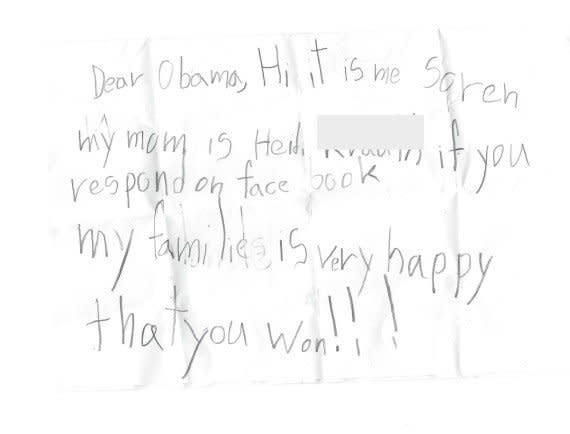 Dear Obama, Hi it is me Soren
my mom is Heidi if you
respond on face book
my families is very happy
that you won!!!